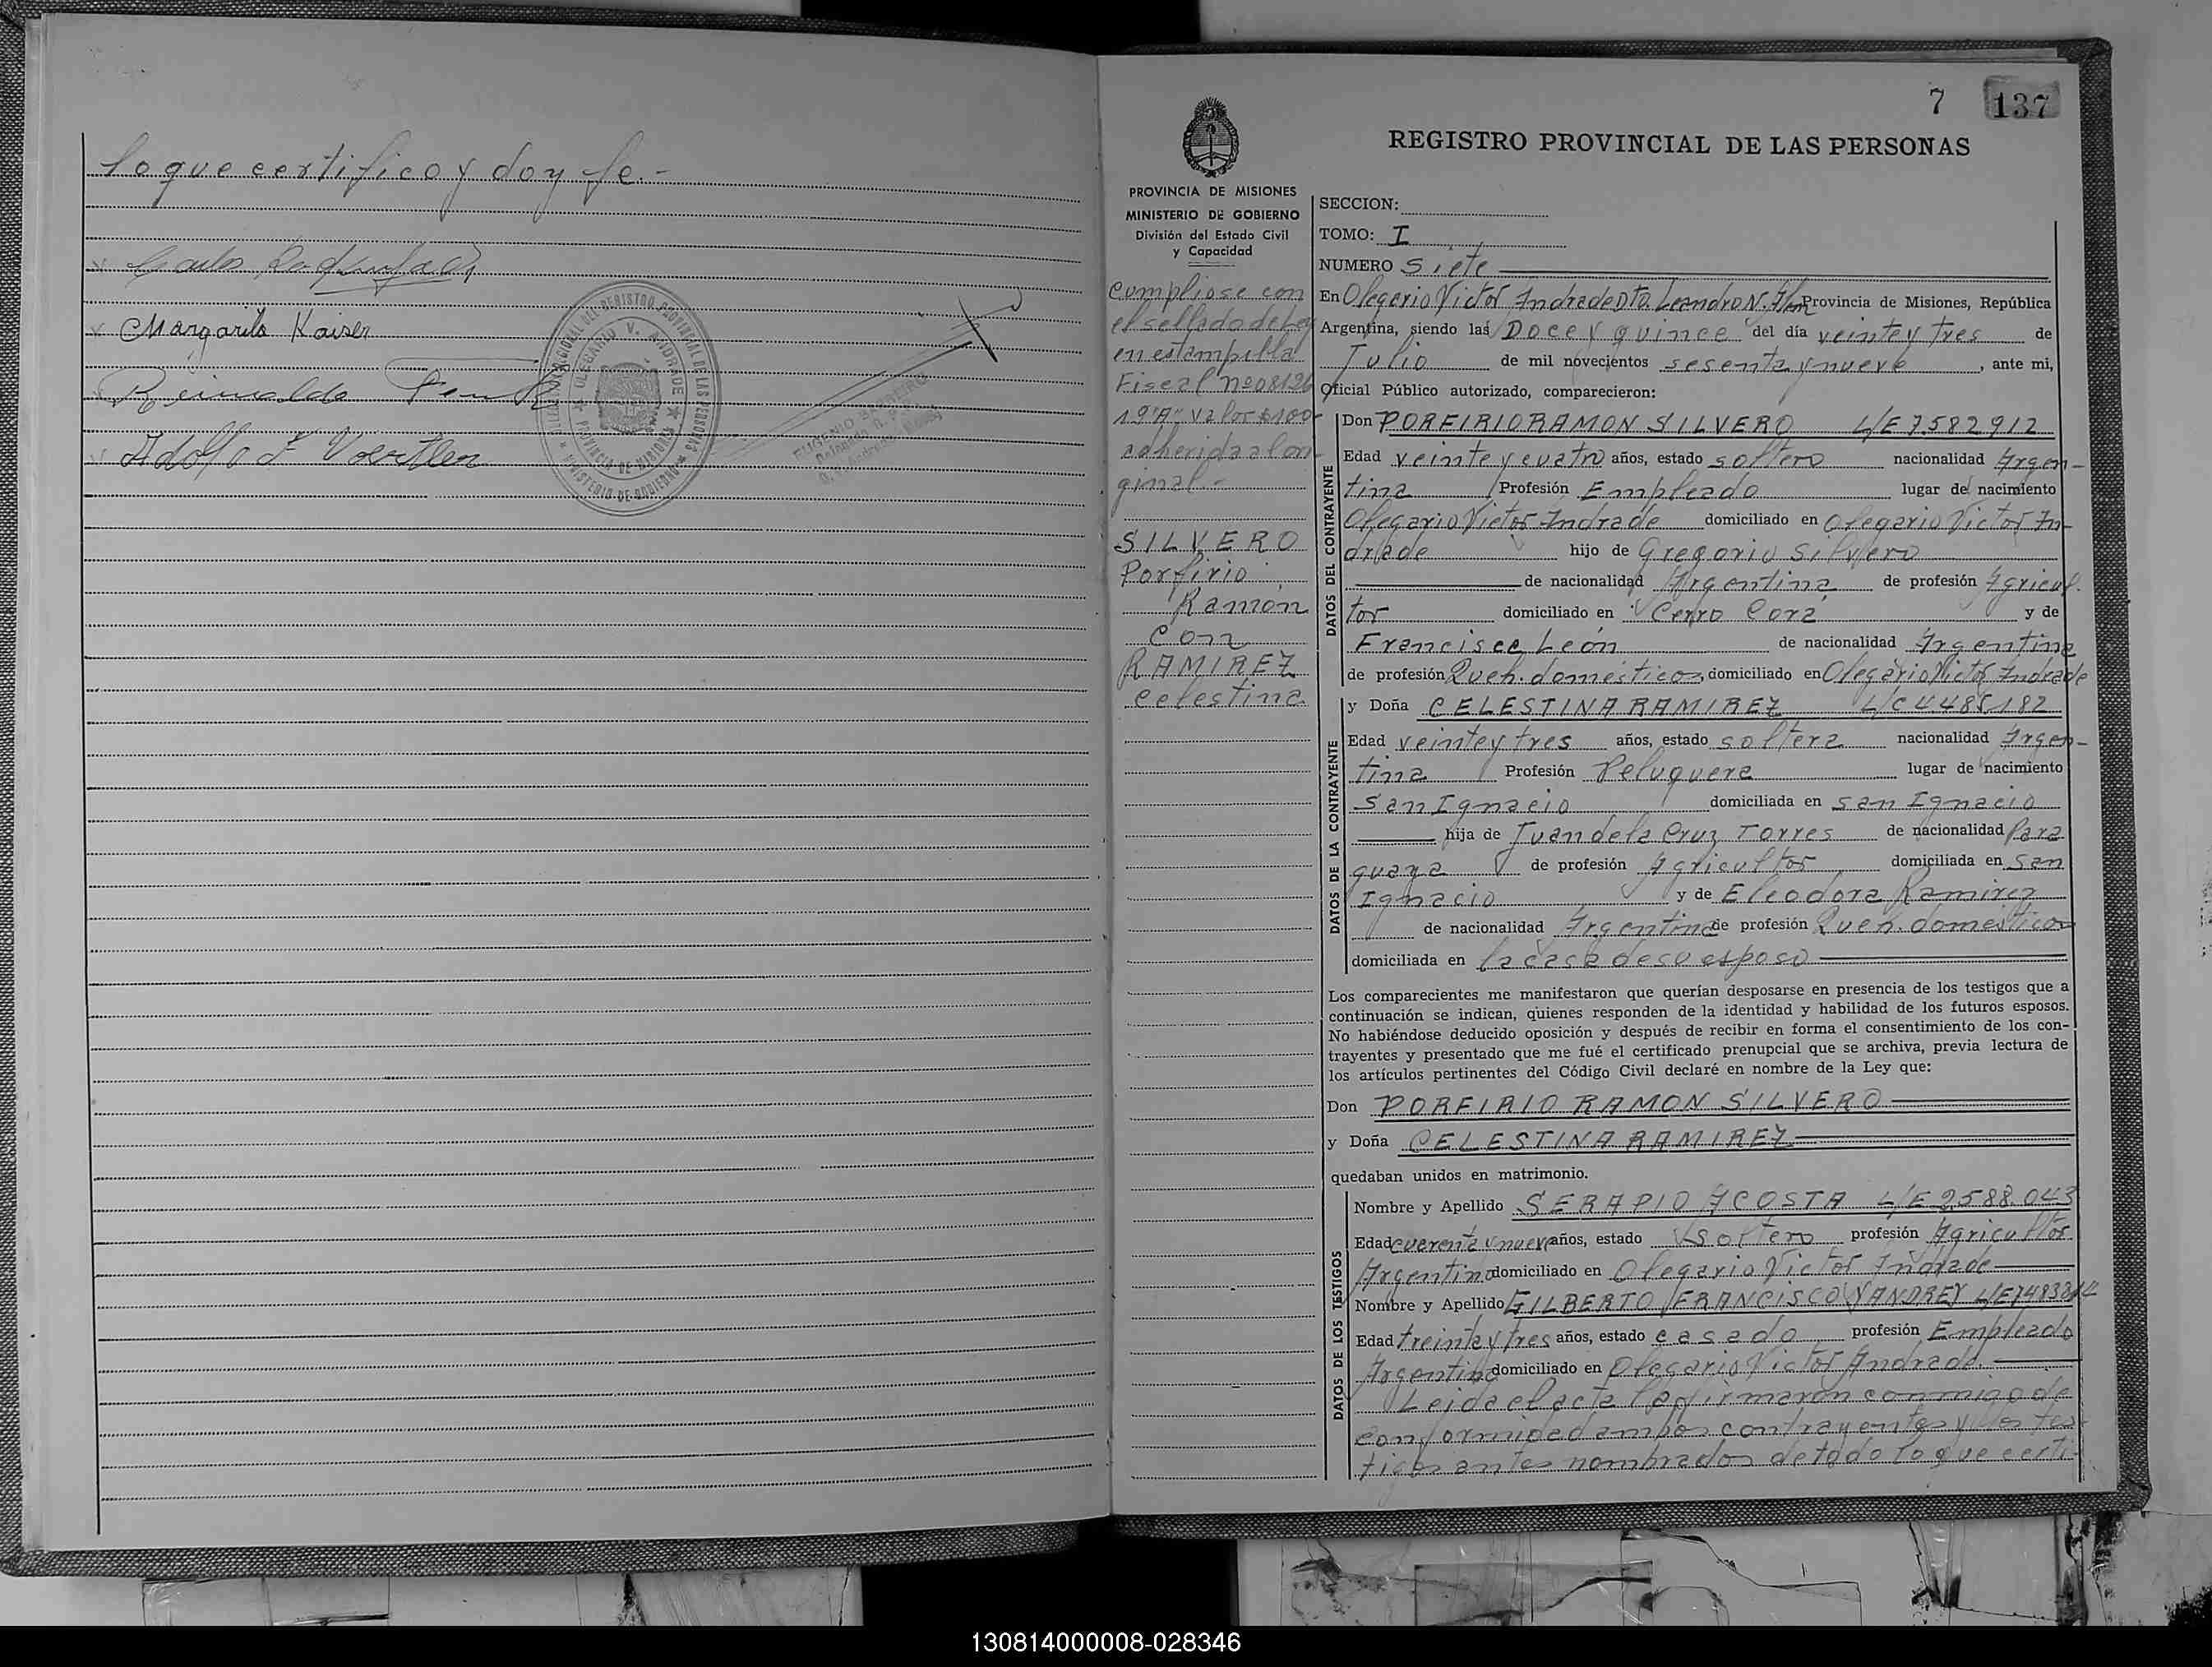 lo que certifico y doy fe.-
Margarita Kaiser
Reinaldo
Adolfo F Voertler
EUGENIO BARRERO
7 137
REGISTRO PROVINCIAL DE LAS PERSONAS
PROVINCIA DE MISIONES
MINISTERIO DE GOBIERNO
División del Estado Civil
y Capacidad
Cumpliose con
el sellado de Ley
en estampilla
Fiscal nº 08126
19"A" valor $100-
adherida al ori-
ginal.-
SILVERO
Porfirio
Ramón
Con
RAMIREZ
Celestina
SECCION:
TOMO: I
NUMERO Siete
En Olegario Victor Andrade Dto. Leandro N. Alem Provincia de Misiones, República
Argentina, siendo las Doce y quince del día veinte y tres de
Julio de mil novecientos sesenta y nueve, ante mi,
Oficial Público autorizado, comparecieron:
DATOS DEL CONTRAYENTE
Don PORFIRIO RAMON SILVERO L/E 7.582912
Edad veinte y cuatro años, estado soltero nacionalidad Argen-
tina Profesión Empleado lugar de nacimiento
Olegario Victor Andrade domiciliado en Olegario Victor An-
drade hijo de Gregorio Silvero
de nacionalidad Argentina de profesión Agricul-
tor domiciliado en Cerro Corá y de
Francisca León de nacionalidad Argentina
de profesión Queh. domésticos domiciliado en Olegario Victor Andrade
DATOS DE LA CONTRAYENTE
y Doña CELESTINA RAMIREZ L/C 4485182
Edad veinte y tres años, estado soltera nacionalidad Argen-
tina Profesión Peluquera lugar de nacimiento
San Ignacio domiciliada en San Ignacio
hija de Juan de la Cruz Torres de nacionalidad Para
guaya de profesión Agricultor domiciliada en San
Ignacio y de Eleodora Ramirez
de nacionalidad Argentina de profesión Queh. domesticos
domiciliada en la casa de su esposo
Los comparecientes me manifestaron que querían desposarse en presencia de los testigos que a
continuación se indican, quienes responden de la identidad y habilidad de los futuros esposos.
No habiéndose deducido oposición y después de recibir en forma el consentimiento de los con-
trayentes y presentado que me fué el certificado prenupcial que se archiva, previa lectura de
los artículos pertinentes del Código Civil declaré en nombre de la Ley que:
Don PORFIRIO RAMON SILVERO
y Doña CELESTINA RAMIREZ
quedaban unidos en matrimonio.
DATOS DE LOS TESTIGOS
Nombre y Apellido SERAPIO ACOSTA L/E 2.588.043
Edad cuarenta y nueve años, estado soltero profesión Agricultor
Argentina domiciliado en Olegario Victor Andrade
Nombre y Apellido GILBERTO FRANCISCO YANDREY L/E
Edad treinta y tres años, estado casado profesión Empleado
Argentina domiciliado en Olegario Victor Andrade.
Leida el acta la firmaron conmigo de
conformidad ambos contrayentes y los tes-
tigos antes nombrados de todo lo que certi-
130814000008-028346